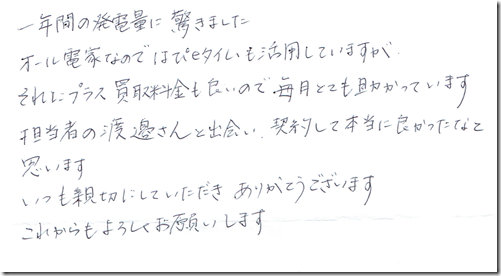 一年間の発電量に驚きました
オール電家なのではぴeタイムも活用していますが
それにプラス買取料金も良いので毎月とても助かっています
担当者の渡邊さんと出会い、契約して本当に良かったなと
思います
いつも親切にしていただきありがとうございます
これからもよろしくお願いします